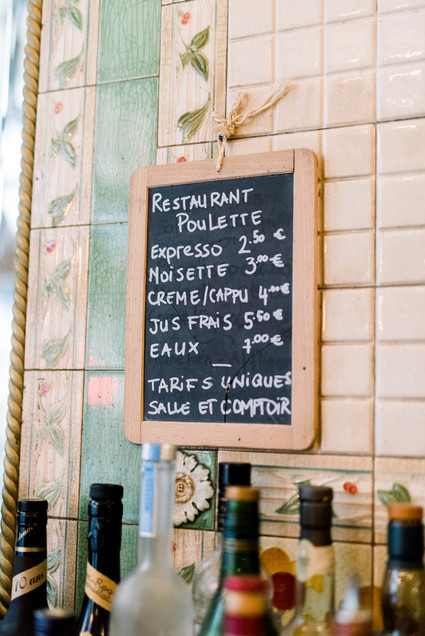 RESTAURANT
POULETTE
Expresso 2.50 €
NOISETTE 3.00 €
CREME/CAPPU 4.00 €
JUS FRAIS 5.50 €
EAUX 7.00 €
—
TARIFS UNIQUES
SALLE ET COMPTOIR
10 ans